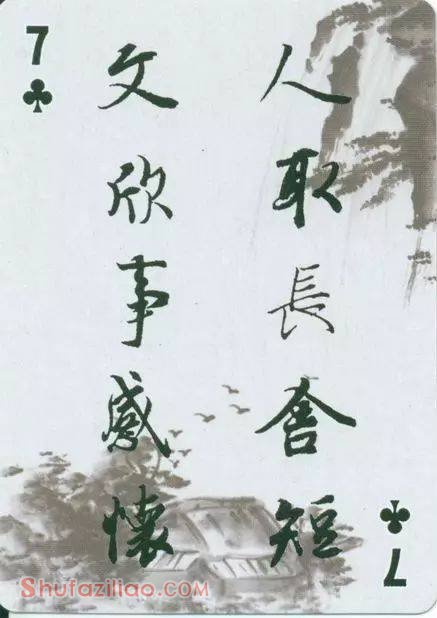 7
人取長舍短
文欣事感懷
7
Shufaziliao.com